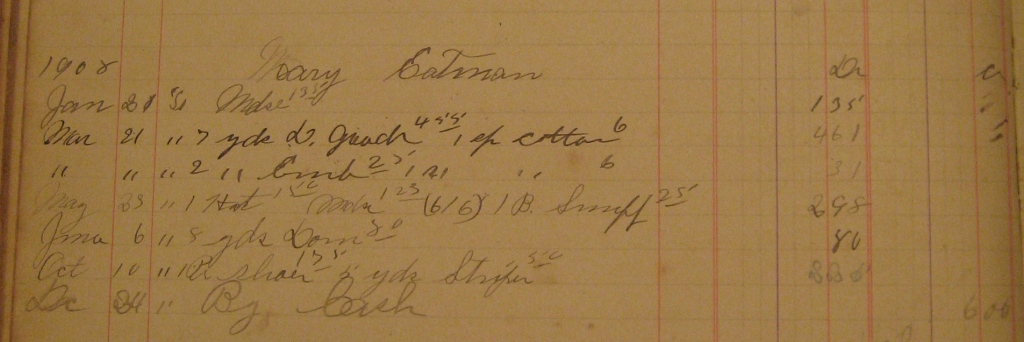 1908 Mary Eatman Dr Cr
Jan 21 To Mdse 135 135
Mar 21 " 7 yds D. Goods 455, 1 sp cotton 6 461
" " " 2 " Emb 25, 1 " " 6 31
May 23 " 1 Hat 150 Mdse 123 (6/6) 1 B. Snuff 25 298
June 6 " 8 yds Dom 80 80
Oct 10 " 1 Pr shoes 175 yds Stripes
Dc 24 " By Cash 600